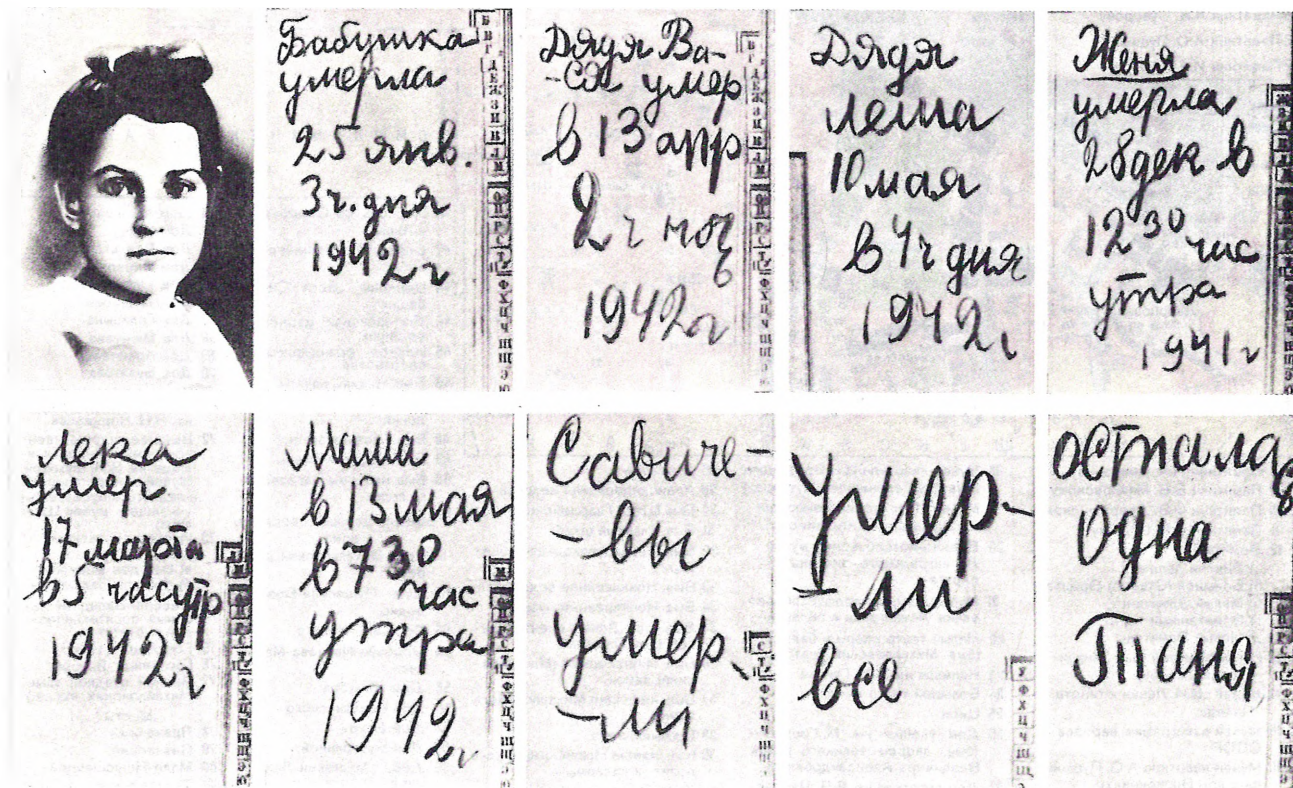 Бабушка
умерла
25 янв.
3 ч. дня
1942 г
Дядя Ва-
-ся умер
в 13 апр
2 ч ночь
1942 г
Дядя
Леша
10 мая
в 4 ч дня
1942 г
Женя
умерла
28 дек в
12 30 час
утра
1941 г
Лека
умер
17 марта
в 5 час утр
1942 г
Мама
в 13 мая
в 7 30
час
утра
1942 г
Савиче-
-вы
умер-
-ли
Умер-
-ли
все
Осталась
одна
Таня